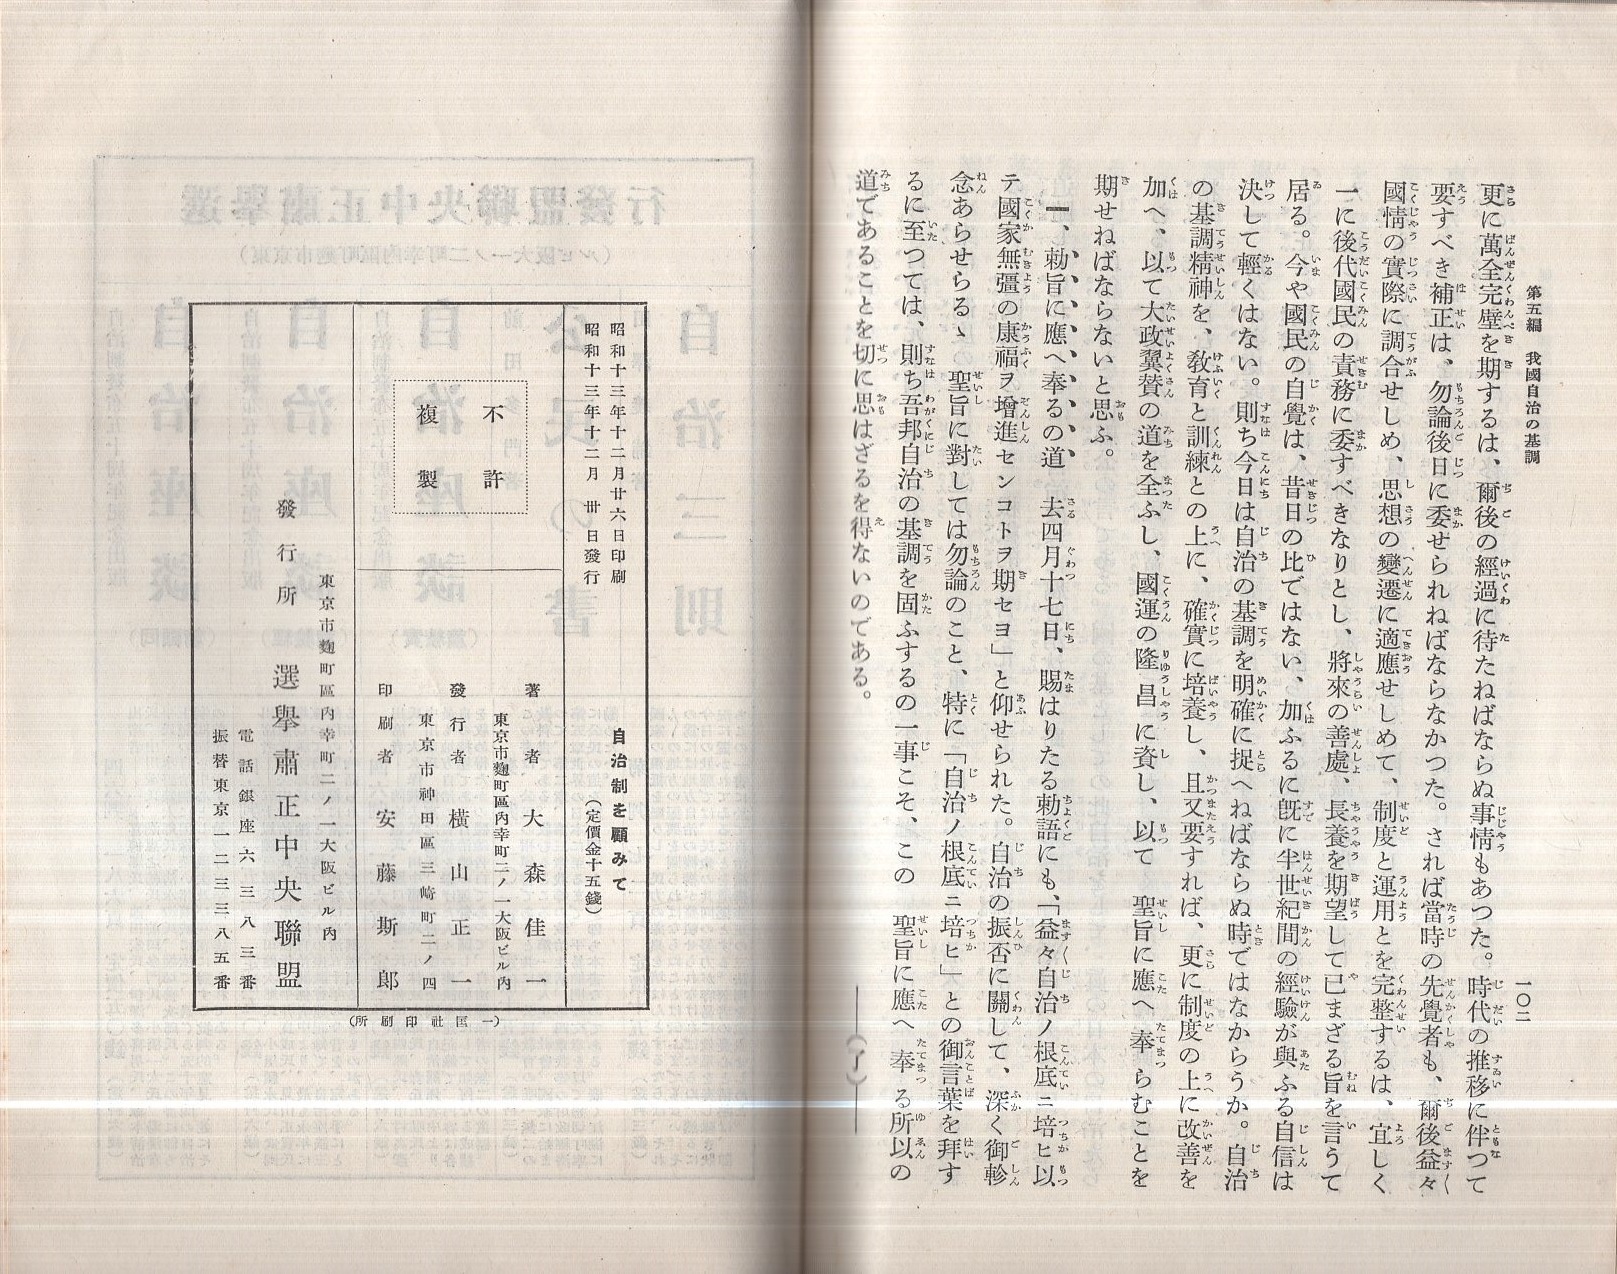 第五編 我國自治の基調
一〇二
更に萬全完璧を期するは、爾後の經過に待たねばならぬ事情もあつた。時代の推移に伴つて
要すべき補正は、勿論後日に委せられねばならなかつた。されば當時の先覺者も、爾後益々
國情の實際に調合せしめ、思想の變遷に適應せしめて、制度と運用とを完整するは、宜しく
一に後代國民の責務に委すべきなりとし、將來の善處、長養を期望して已まざる旨を言うて
居る。今や國民の自覺は、昔日の比ではない、加ふるに既に半世紀間の經驗が與ふる自信は
決して輕くはない。則ち今日は自治の基調を明確に捉へねばならぬ時ではなからうか。自治
の基調精神を、敎育と訓練との上に、確實に培養し、且又要すれば、更に制度の上に改善を
加へ、以て大政翼賛の道を全ふし、國運の隆昌に資し、以て 聖旨に應へ奉らむことを
期せねばならないと思ふ。
一、勅旨に應へ奉るの道 去四月十七日、賜はりたる勅語にも、「益々自治ノ根底ニ培ヒ以
テ國家無彊の康福ヲ增進センコトヲ期セヨ」と仰せられた。自治の振否に關して、深く御軫
念あらせらるゝ 聖旨に對しては勿論のこと、特に「自治ノ根底ニ培ヒ」との御言葉を拜す
るに至つては、則ち吾邦自治の基調を固ふするの一事こそ、この 聖旨に應へ奉る所以の
道であることを切に思はざるを得ないのである。
――(了)――
昭和十三年十二月廿六日印刷
昭和十三年十二月 卅 日發行
自治制を顧みて
(定價金十五錢)
不許
複製
著者 大森佳一
東京市麴町區內幸町二ノ一大阪ビル內
發行者 橫山正一
東京市神田區三崎町二ノ四
印刷者 安藤斯郎
東京市麴町區內幸町二ノ一大阪ビル內
發行所 選擧肅正中央聯盟
電話銀座六三八三番
振替東京一二三三八五番
(一匡社印刷所)